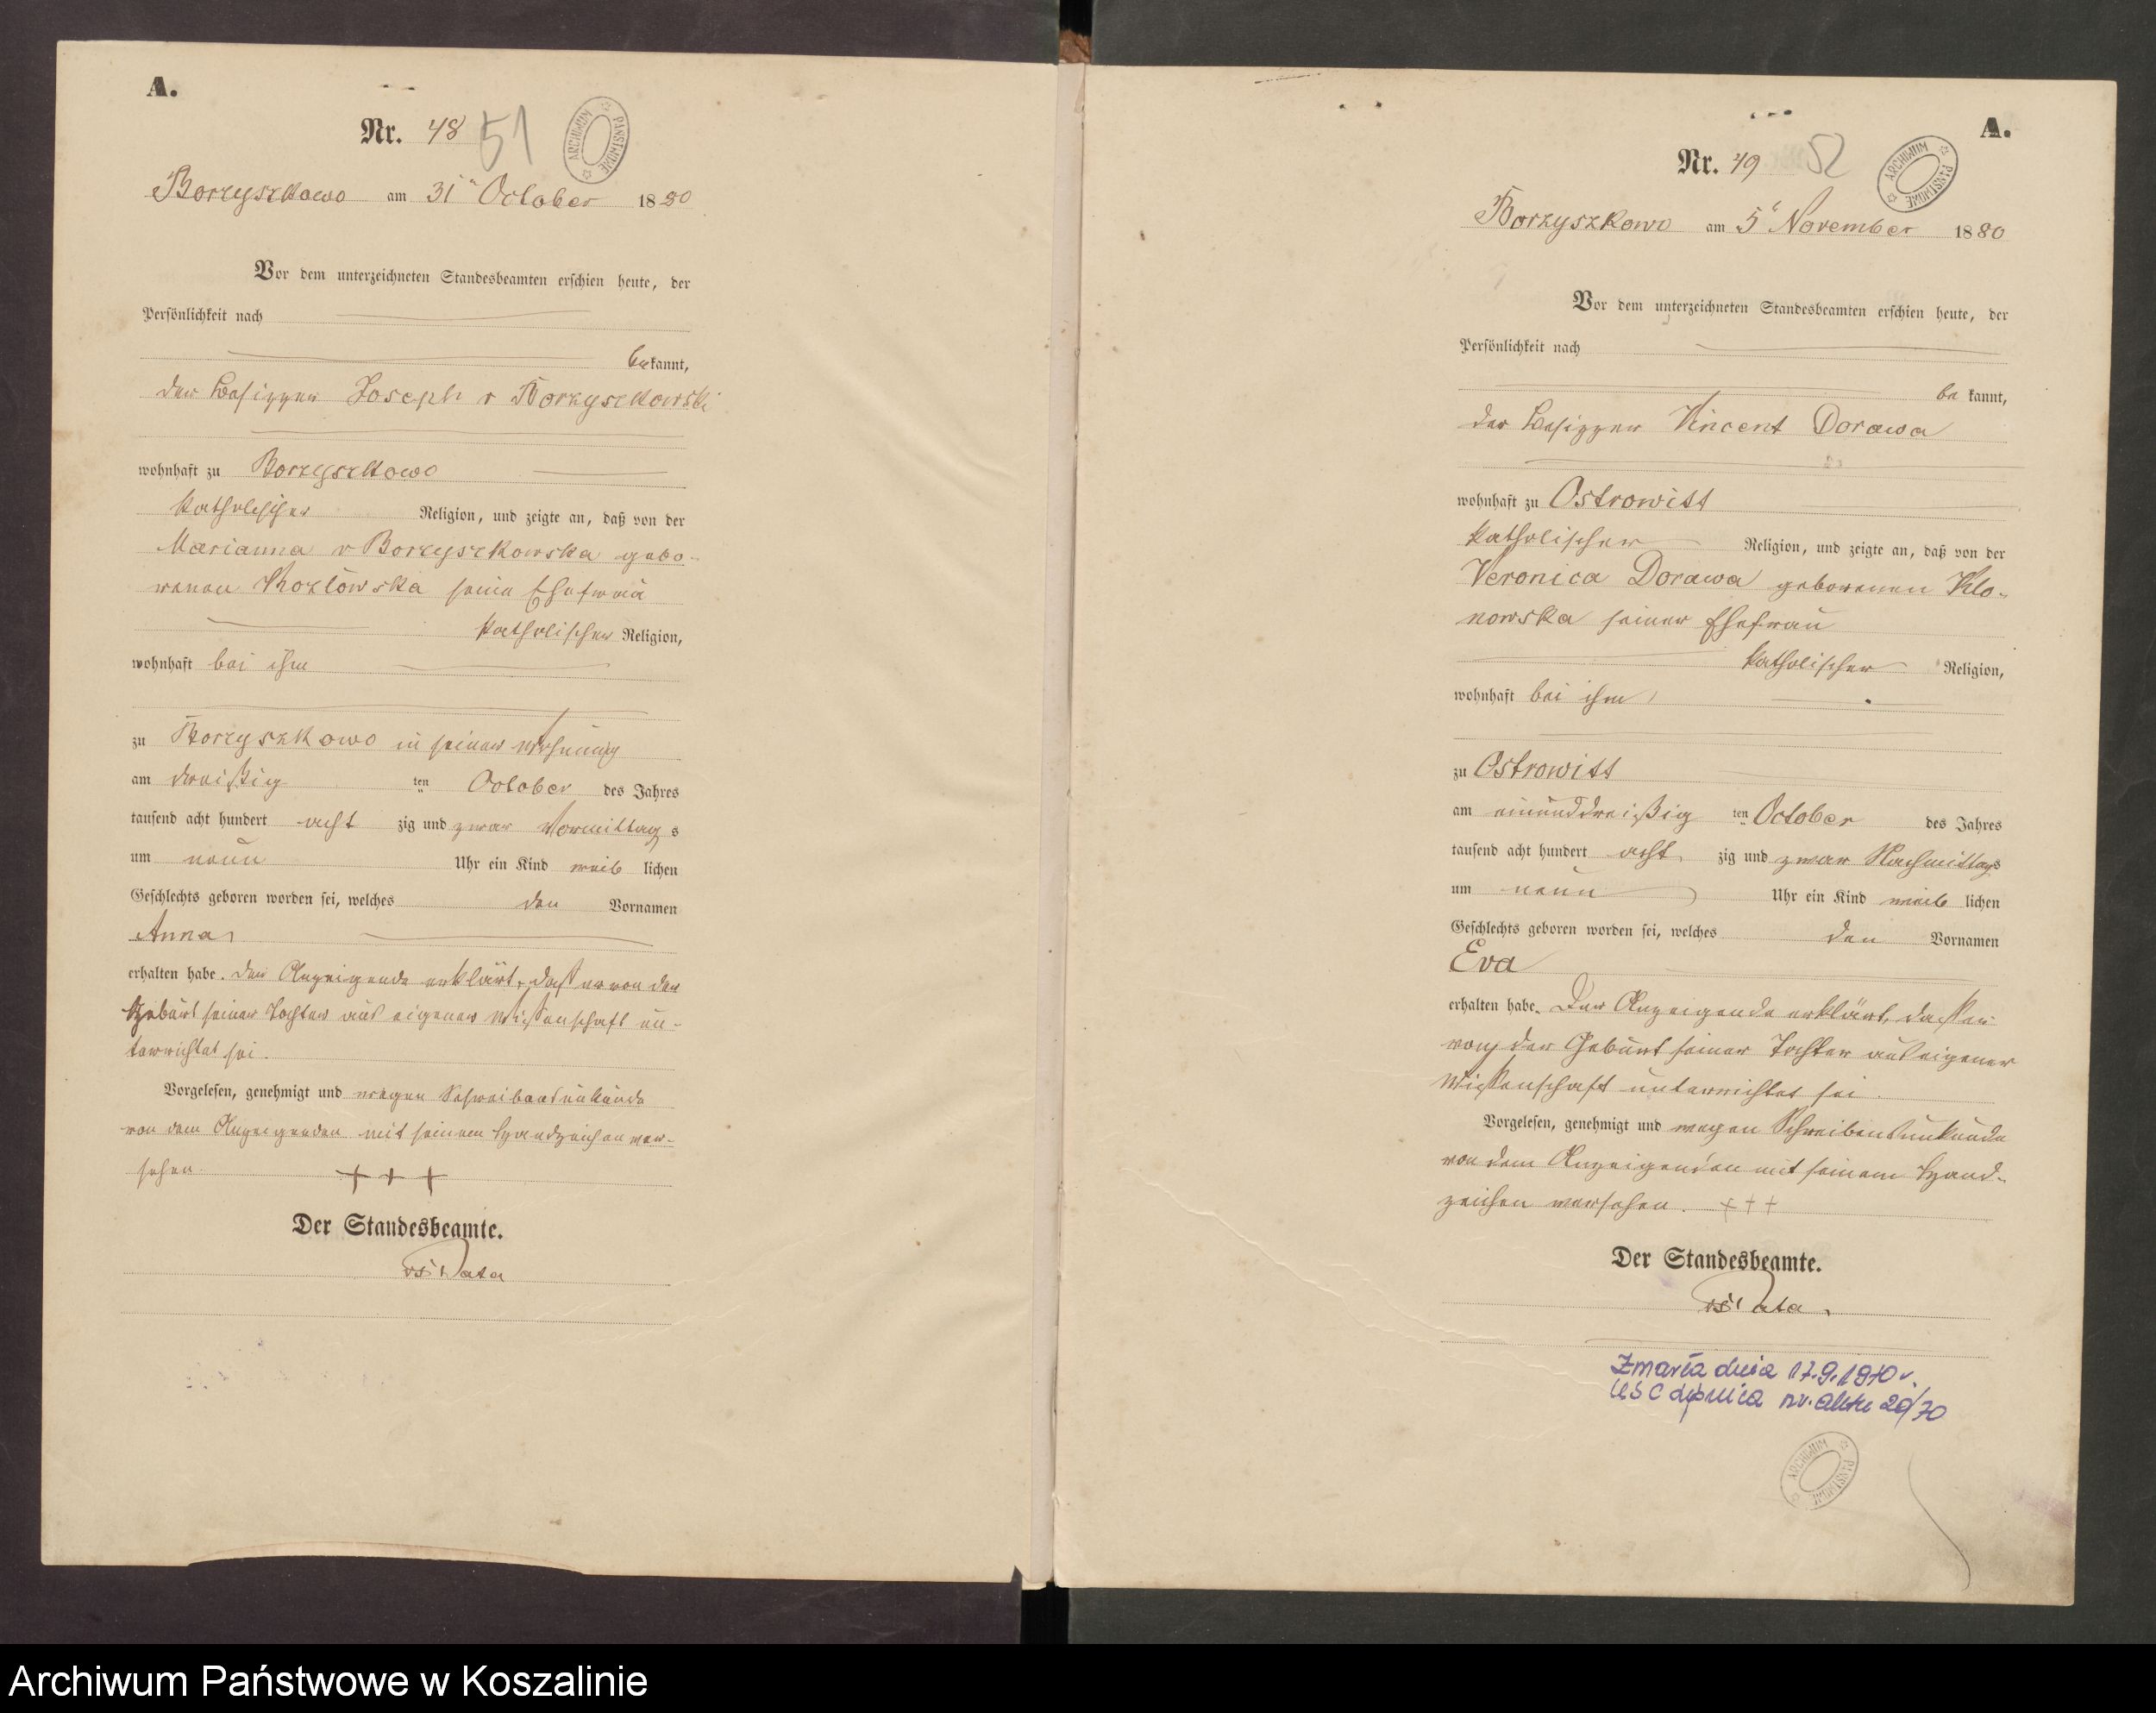 A.
Nr. 48 51
ARCHIWUM PAŃSTWOWE
Borzyszkowo am 31ten October 1880
Vor dem unterzeichneten Standesbeamten erschien heute, der
Persönlichkeit nach
bekannt,
der Besitzer Joseph v Borzyszkowski
wohnhaft zu Borzyszkowo
katholischer Religion, und zeigte an, daß von der
Marianna v Borzyszkowska gebo-
renen Kozlowska seine Ehefrau
katholischer Religion,
wohnhaft bei ihm
zu Borzyszkowo in seiner Wohnung
am dreißig ten October des Jahres
tausend acht hundert acht zig und zwar Vormittags
um neun Uhr ein Kind weib lichen
Geschlechts geboren worden sei, welches den Vornamen
Anna
erhalten habe. Der Anzeigende erklärt, daß er von der
Geburt seiner Tochter aus eigener Wissenschaft un-
terrichtet sei.
Vorgelesen, genehmigt und wegen Schreibensunkunde
von dem Anzeigenden mit seinem Handzeichen ver-
sehen. + + +
Der Standesbeamte.
A.
Nr. 49 52
ARCHIWUM PAŃSTWOWE
Borzyszkowo am 5t November 1880
Vor dem unterzeichneten Standesbeamten erschien heute, der
Persönlichkeit nach
be kannt,
der Besitzer Vincent Dorawa
wohnhaft zu Ostrowitt
katholischer Religion, und zeigte an, daß von der
Veronica Dorawa geborenen Klo-
nowska seiner Ehefrau
katholischer Religion,
wohnhaft bei ihm
zu Ostrowitt
am einunddreißig ten October des Jahres
tausend acht hundert acht zig und zwar Nachmittags
um neun Uhr ein Kind weib lichen
Geschlechts geboren worden sei, welches den Vornamen
Eva
erhalten habe. Der Anzeigende erklärt, dass er
von der Geburt seiner Tochter aus eigener
Wissenschaft unterrichtet sei.
Vorgelesen, genehmigt und wegen Schreibensunkunde
von dem Anzeigenden mit seinem Hand-
zeichen versehen. + + +
Der Standesbeamte.
Zmarła dnia 17.9.1970 r.
USC Lipnica nr. aktu 20/70
ARCHIWUM PAŃSTWOWE
Archiwum Państwowe w Koszalinie